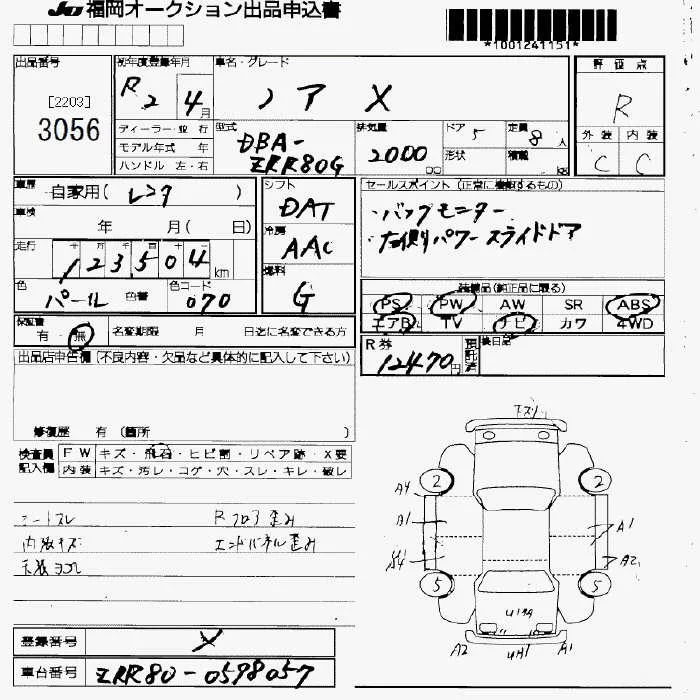 JU 福岡オークション出品申込書
*1001241151*
出品番号
[2203]
3056
初年度登録年月
R2 4月
車名・グレード
ノア X
評価点
R
外装 内装
C C
ディーラー・並行
モデル年式 年
ハンドル 左・右
型式
DBA-
ZRR80G
排気量
2000 cc
ドア 5
形状
定員 8人
積載 kg
車歴 自家用(レンタ)
車検 年 月( 日)
走行 十 万 千 百 十
123504 km
色 パール 色番
色コード 070
シフト
DAT
冷房
AAC
燃料
G
セールスポイント(正常に機動するもの)
・バックモニター
・左側パワースライドドア
装備品(純正品に限る)
PS PW AW SR ABS
エアB TV ナビ カワ 4WD
保証書 有・無
名変期限 月 日迄に名変できる方
R券
12470円
預託済
後日品
出品店申告欄(不良内容・欠品など具体的に記入して下さい)
修復歴 有 (箇所 )
検査員記入欄
FW キズ・飛石・ヒビ割・リペア跡・X要
内装 キズ・汚レ・コゲ・穴・スレ・キレ・破レ
シートスレ
Rフロア歪み
内張キズ
エンドパネル歪み
天張ヨゴレ
A4
A1
A1
A2
2
2
5
5
A2
A1
登録番号
車台番号 ZRR80-0598057